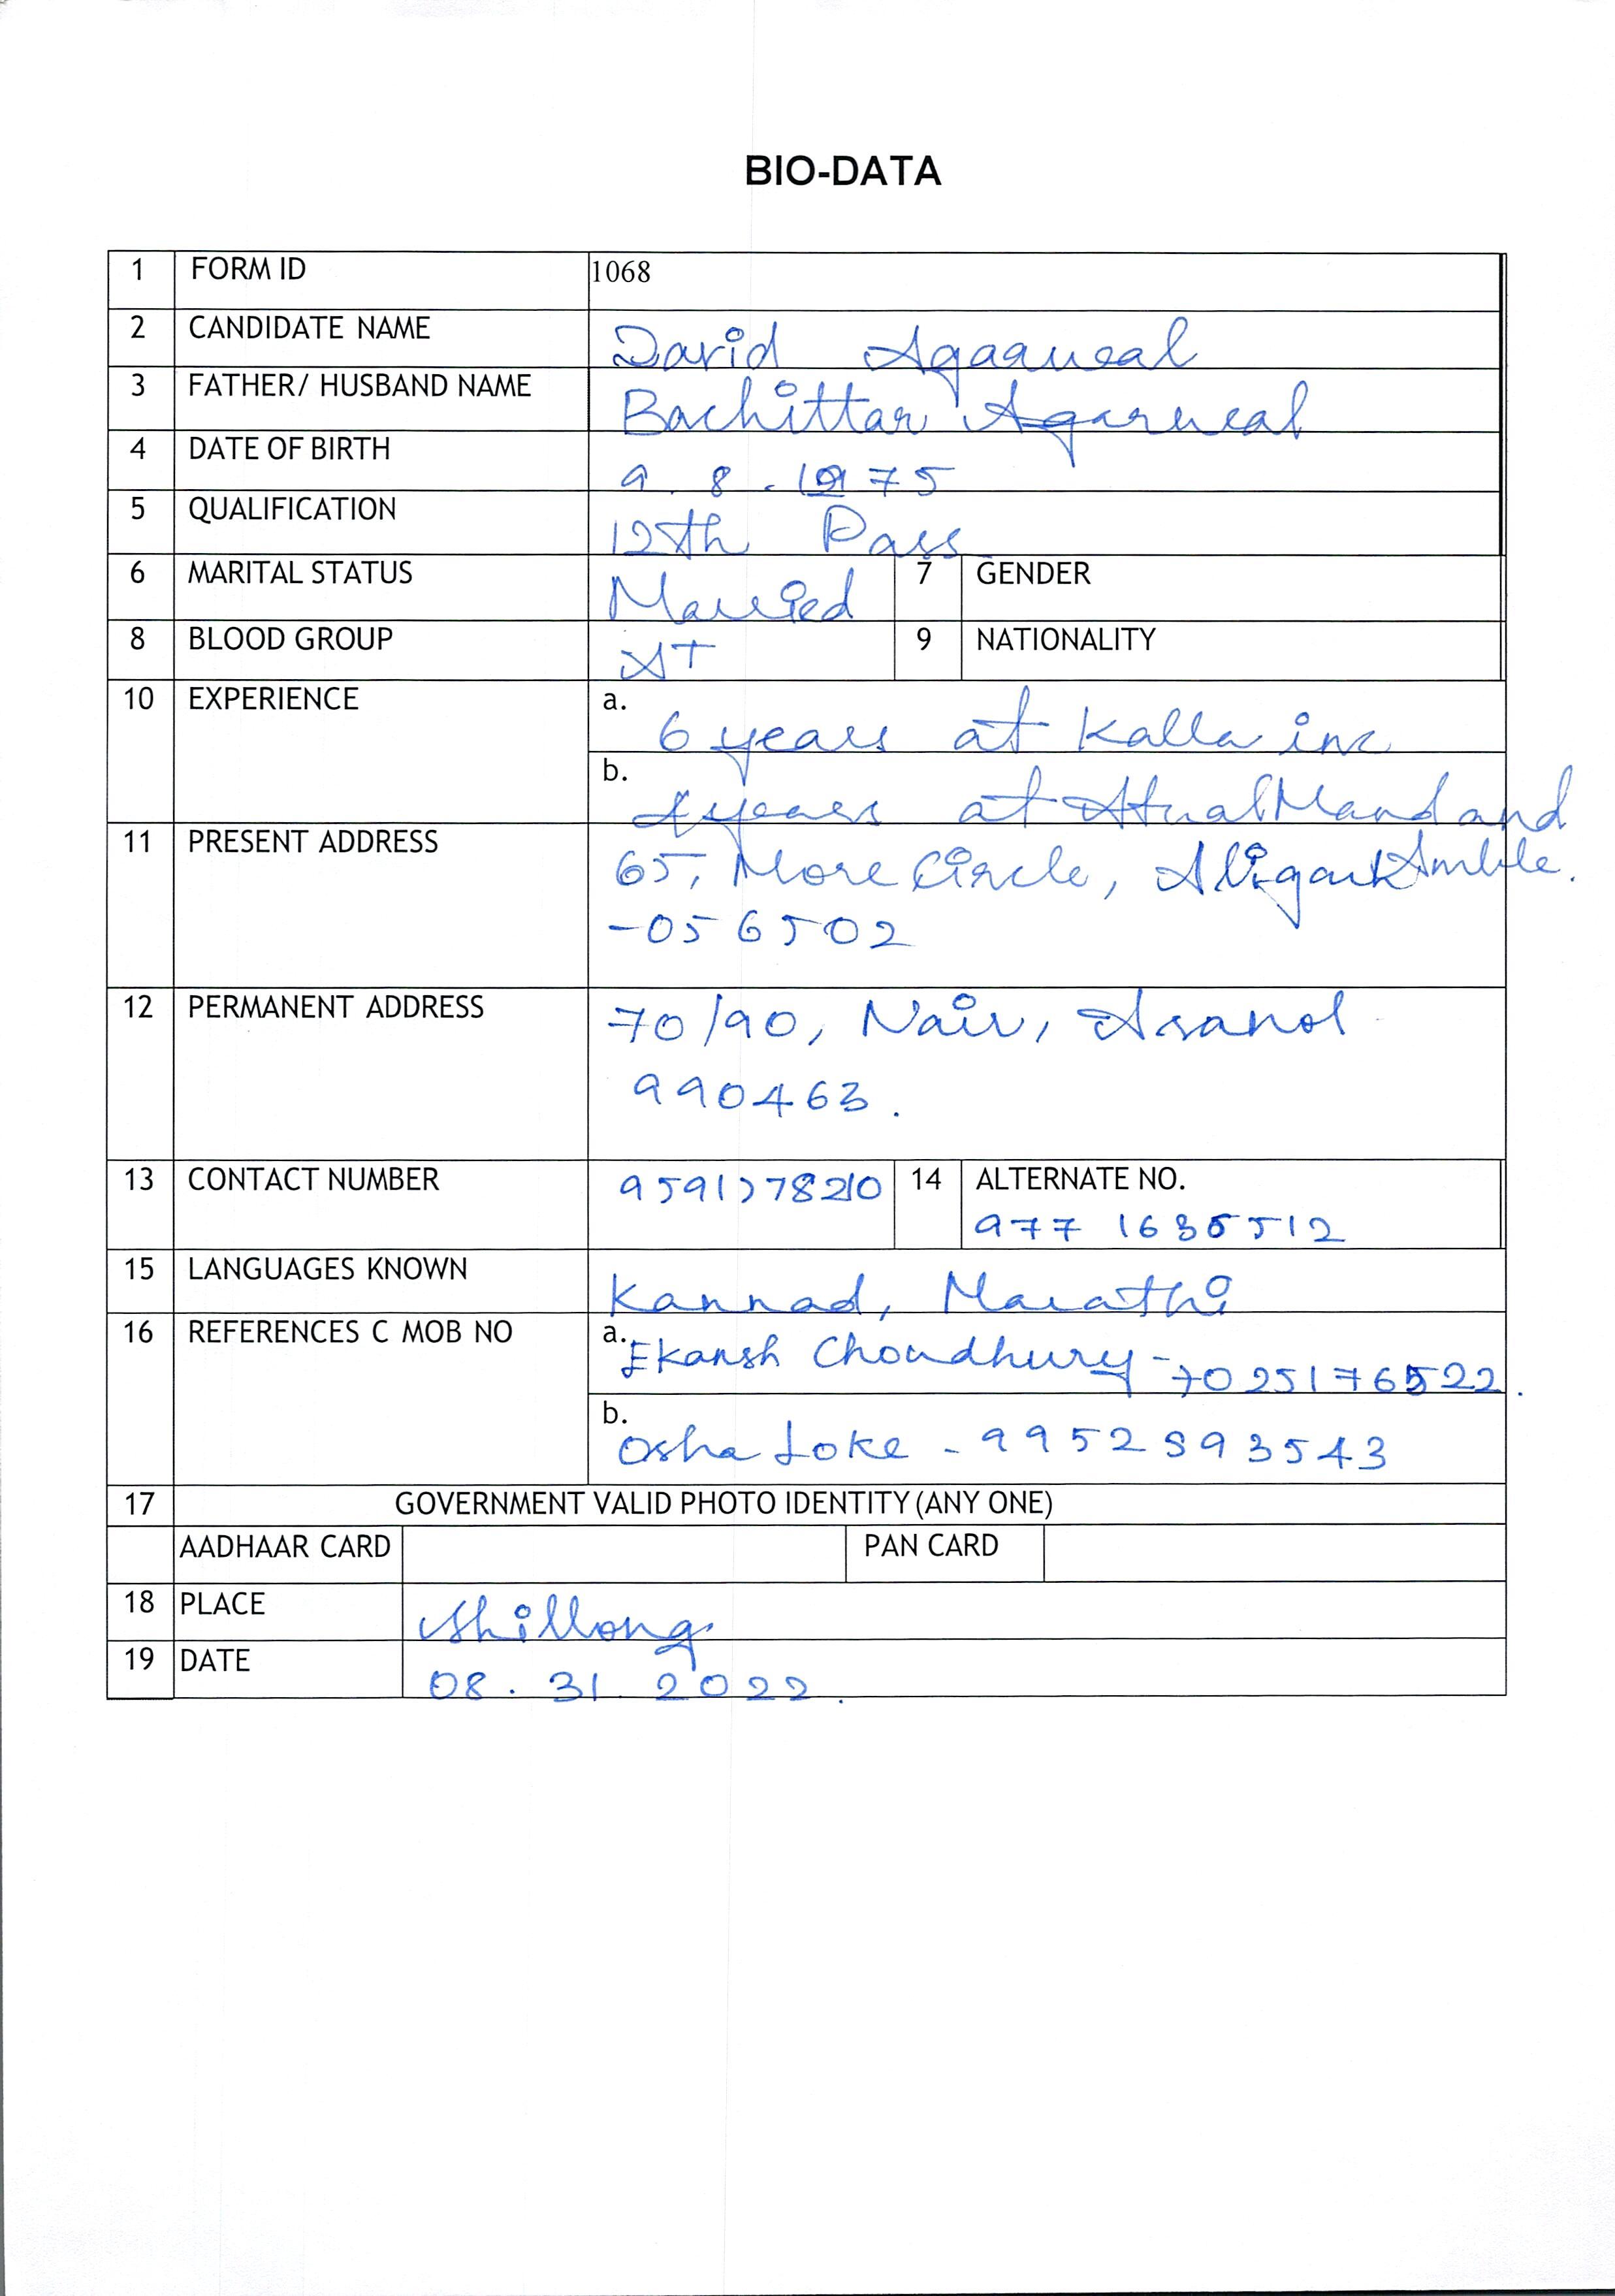 BIO-DATA
1 FORM ID 1068
2 CANDIDATE NAME David Agarwal
3 FATHER/ HUSBAND NAME Bachittar Agarwal
4 DATE OF BIRTH 9.8.1975
5 QUALIFICATION 12th Pass
6 MARITAL STATUS Married 7 GENDER
8 BLOOD GROUP A+ 9 NATIONALITY
10 EXPERIENCE a. 6 years at Kalla inc
b. years at Mand and
11 PRESENT ADDRESS 65, More Circle, Aligarh
-056502
12 PERMANENT ADDRESS 70/90, Nair,
990463.
13 CONTACT NUMBER 9591778210 14 ALTERNATE NO.
977 1635512
15 LANGUAGES KNOWN Kannad, Marathi
16 REFERENCES C MOB NO a. Ekansh Choudhury - 7025176522.
b. Osha Loke - 9952893543
17 GOVERNMENT VALID PHOTO IDENTITY (ANY ONE)
AADHAAR CARD PAN CARD
18 PLACE Shillong
19 DATE 08.31.2022.